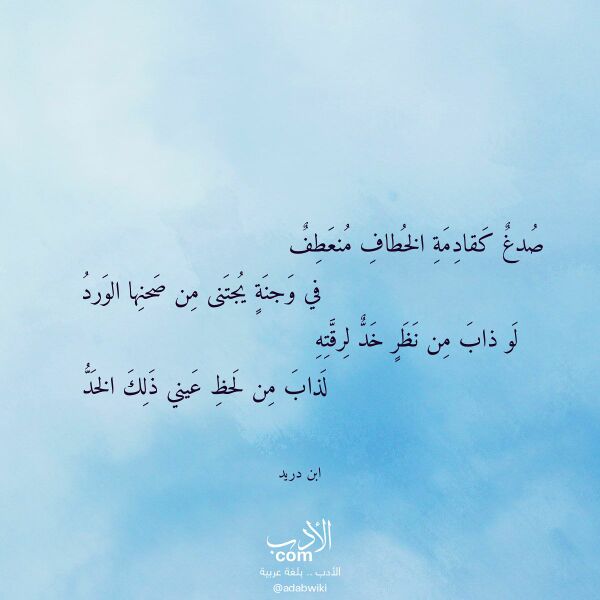 صُدغٌ كَقادِمَةِ الخُطافِ مُنعَطِفٌ
في وَجنَةٍ يُجتَنى مِن صَحنِها الوَردُ
لَو ذابَ مِن نَظَرٍ خَدٌّ لِرِقَّتِهِ
لَذابَ مِن لَحظِ عَيني ذَلِكَ الخَدُّ
ابن دريد
الأدب
com
الأدب .. بلغة عربية
@adabwiki